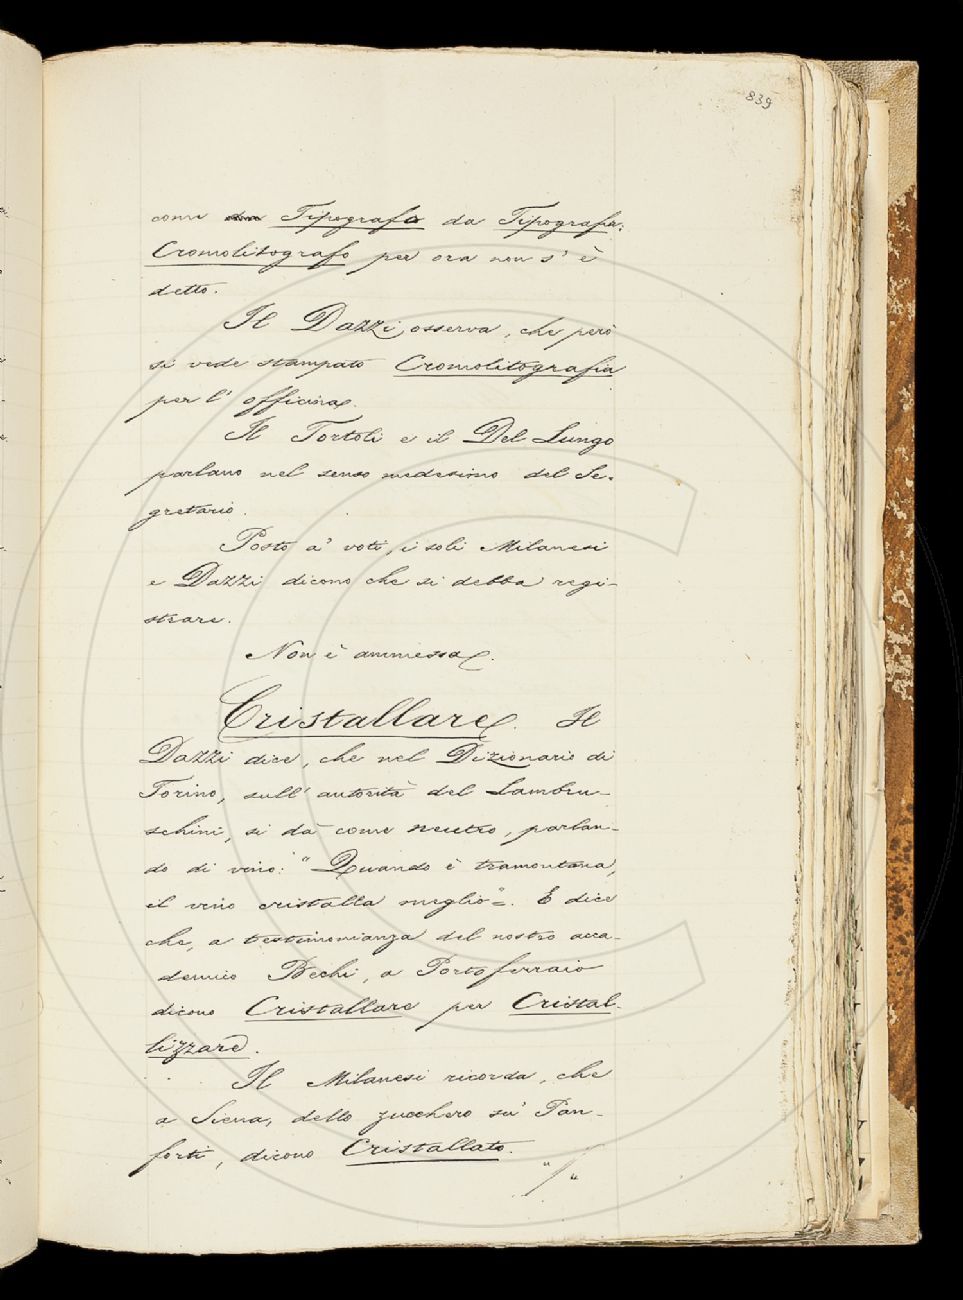 839
come Tipografo da Tipografia.
Cromolitografo per ora non s' è
detto.
Il Dazzi osserva, che però
si vede stampato Cromolitografia
per l' officina.
Il Tortoli e il Del Lungo
parlano nel senso medesimo del Se-
gretario.
Posto a' voti, i soli Milanesi
e Dazzi dicono che si debba regi-
strare.
Non è ammessa.
Cristallare. Il
Dazzi dice, che nel Dizionario di
Torino, sull' autorità del Lambru-
schini, si dà come neutro, parlan-
do di vino: "Quando è tramontana,
il vino cristalla meglio". E dice
che, a testimonianza del nostro acca-
demico Bechi, a Portoferraio
dicono Cristallare per Cristal-
lizzare.
Il Milanesi ricorda, che
a Siena, dello zucchero su' Pan-
forti, dicono Cristallato.